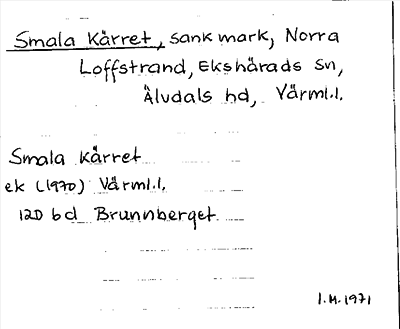 Smala Kärret, sank mark, Norra
Loffstrand, Ekshärads sn,
Älvdals hd, Värml.l.
Smala Kärret
ek (1970) Värml.l.
12D bd Brunnberget
I.H.1971